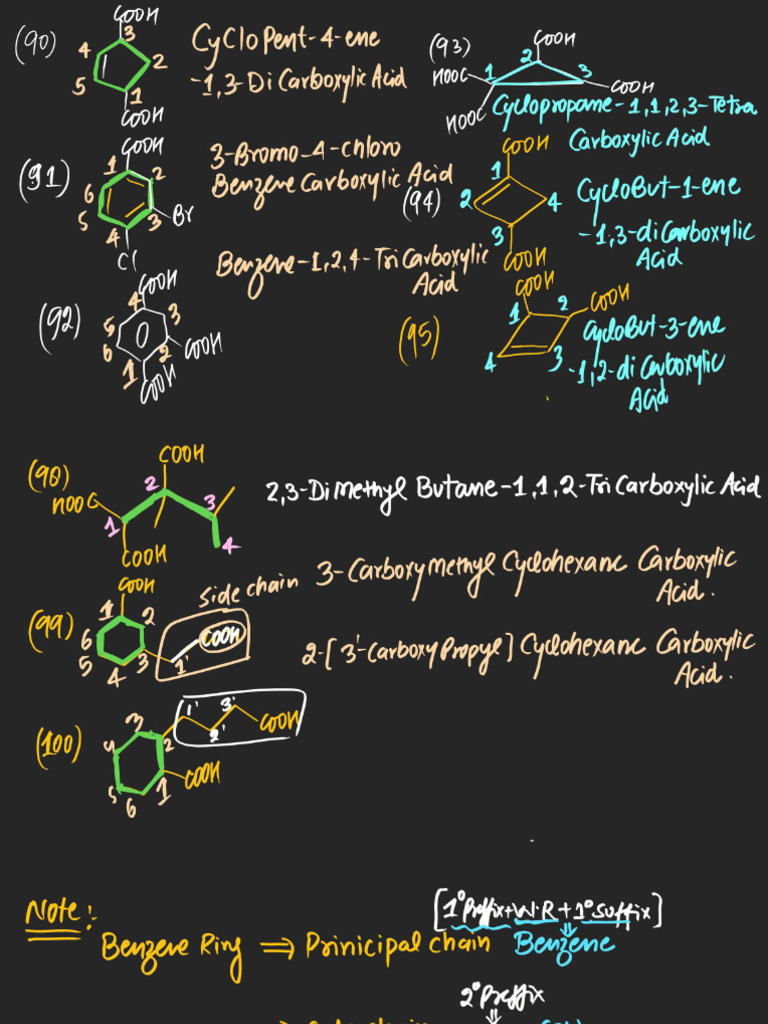 (90)
COOH
4 3 2 5 1
COOH
CyClo Pent-4-ene
-1,3-Di Carboxylic Acid
(91)
COOH
1 2 3 4 5 6
Br
Cl
3-Bromo-4-chloro
Benzene Carboxylic Acid
(92)
COOH
4 3 5 6 2 1
COOH
COOH
Benzene-1,2,4-Tri Carboxylic
Acid
(93)
COOH
HOOC 1 2 3 COOH
HOOC
Cyclopropane-1,1,2,3-Tetra
Carboxylic Acid
(94)
COOH
1 2 4 3
COOH
CycloBut-1-ene
-1,3-di Carboxylic
Acid
(95)
COOH
1 2 COOH
4 3
CycloBut-3-ene
-1,2-di Carboxylic
Acid
(98)
COOH
HOOC 2 3
1 4
COOH
2,3-Dimethyl Butane-1,1,2-Tri Carboxylic Acid
(99)
COOH
1 2 6 5 4 3 1'
COOH
side chain
3-Carboxymethyl Cyclohexane Carboxylic
Acid.
(100)
1' 3' 2' COOH
3 2 4 5 6 1
COOH
2-[3'-Carboxy Propyl] Cyclohexane Carboxylic
Acid.
Note:
[1° Prefix+W.R+1° Suffix]
Benzene Ring ⇒ Prinicipal chain Benzene
2° Prefix